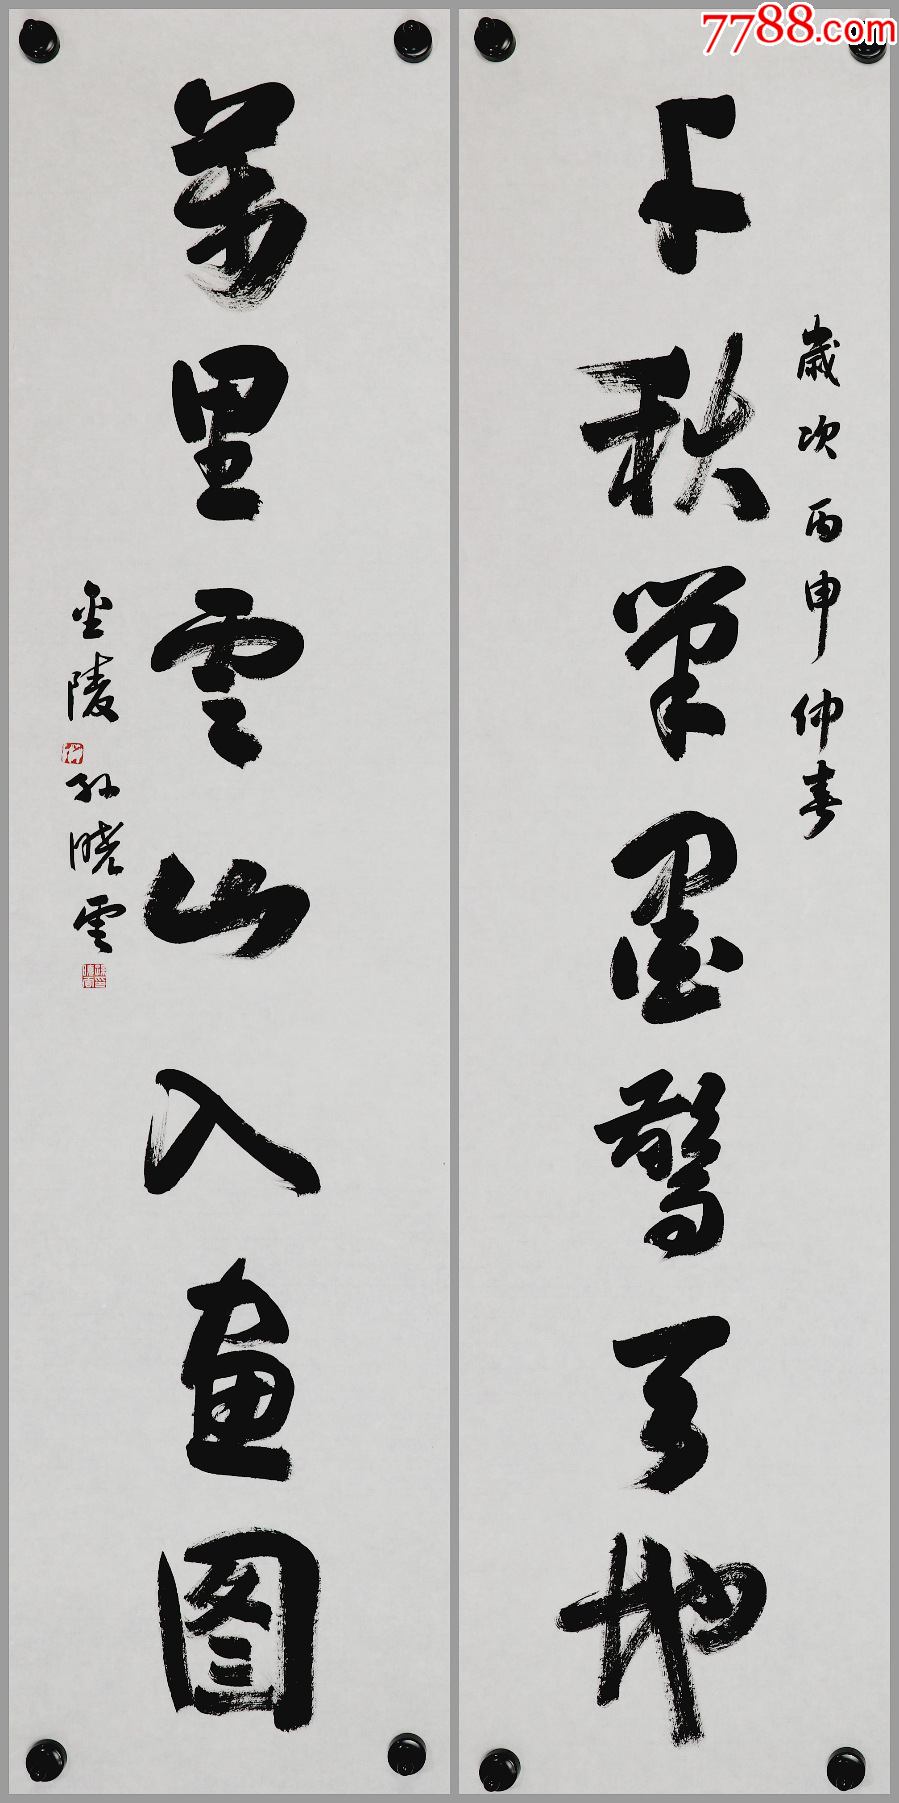 7788.com
千秋筆墨驚天地
歲次丙申仲春
萬里雲山入画图
金陵孫曉雲